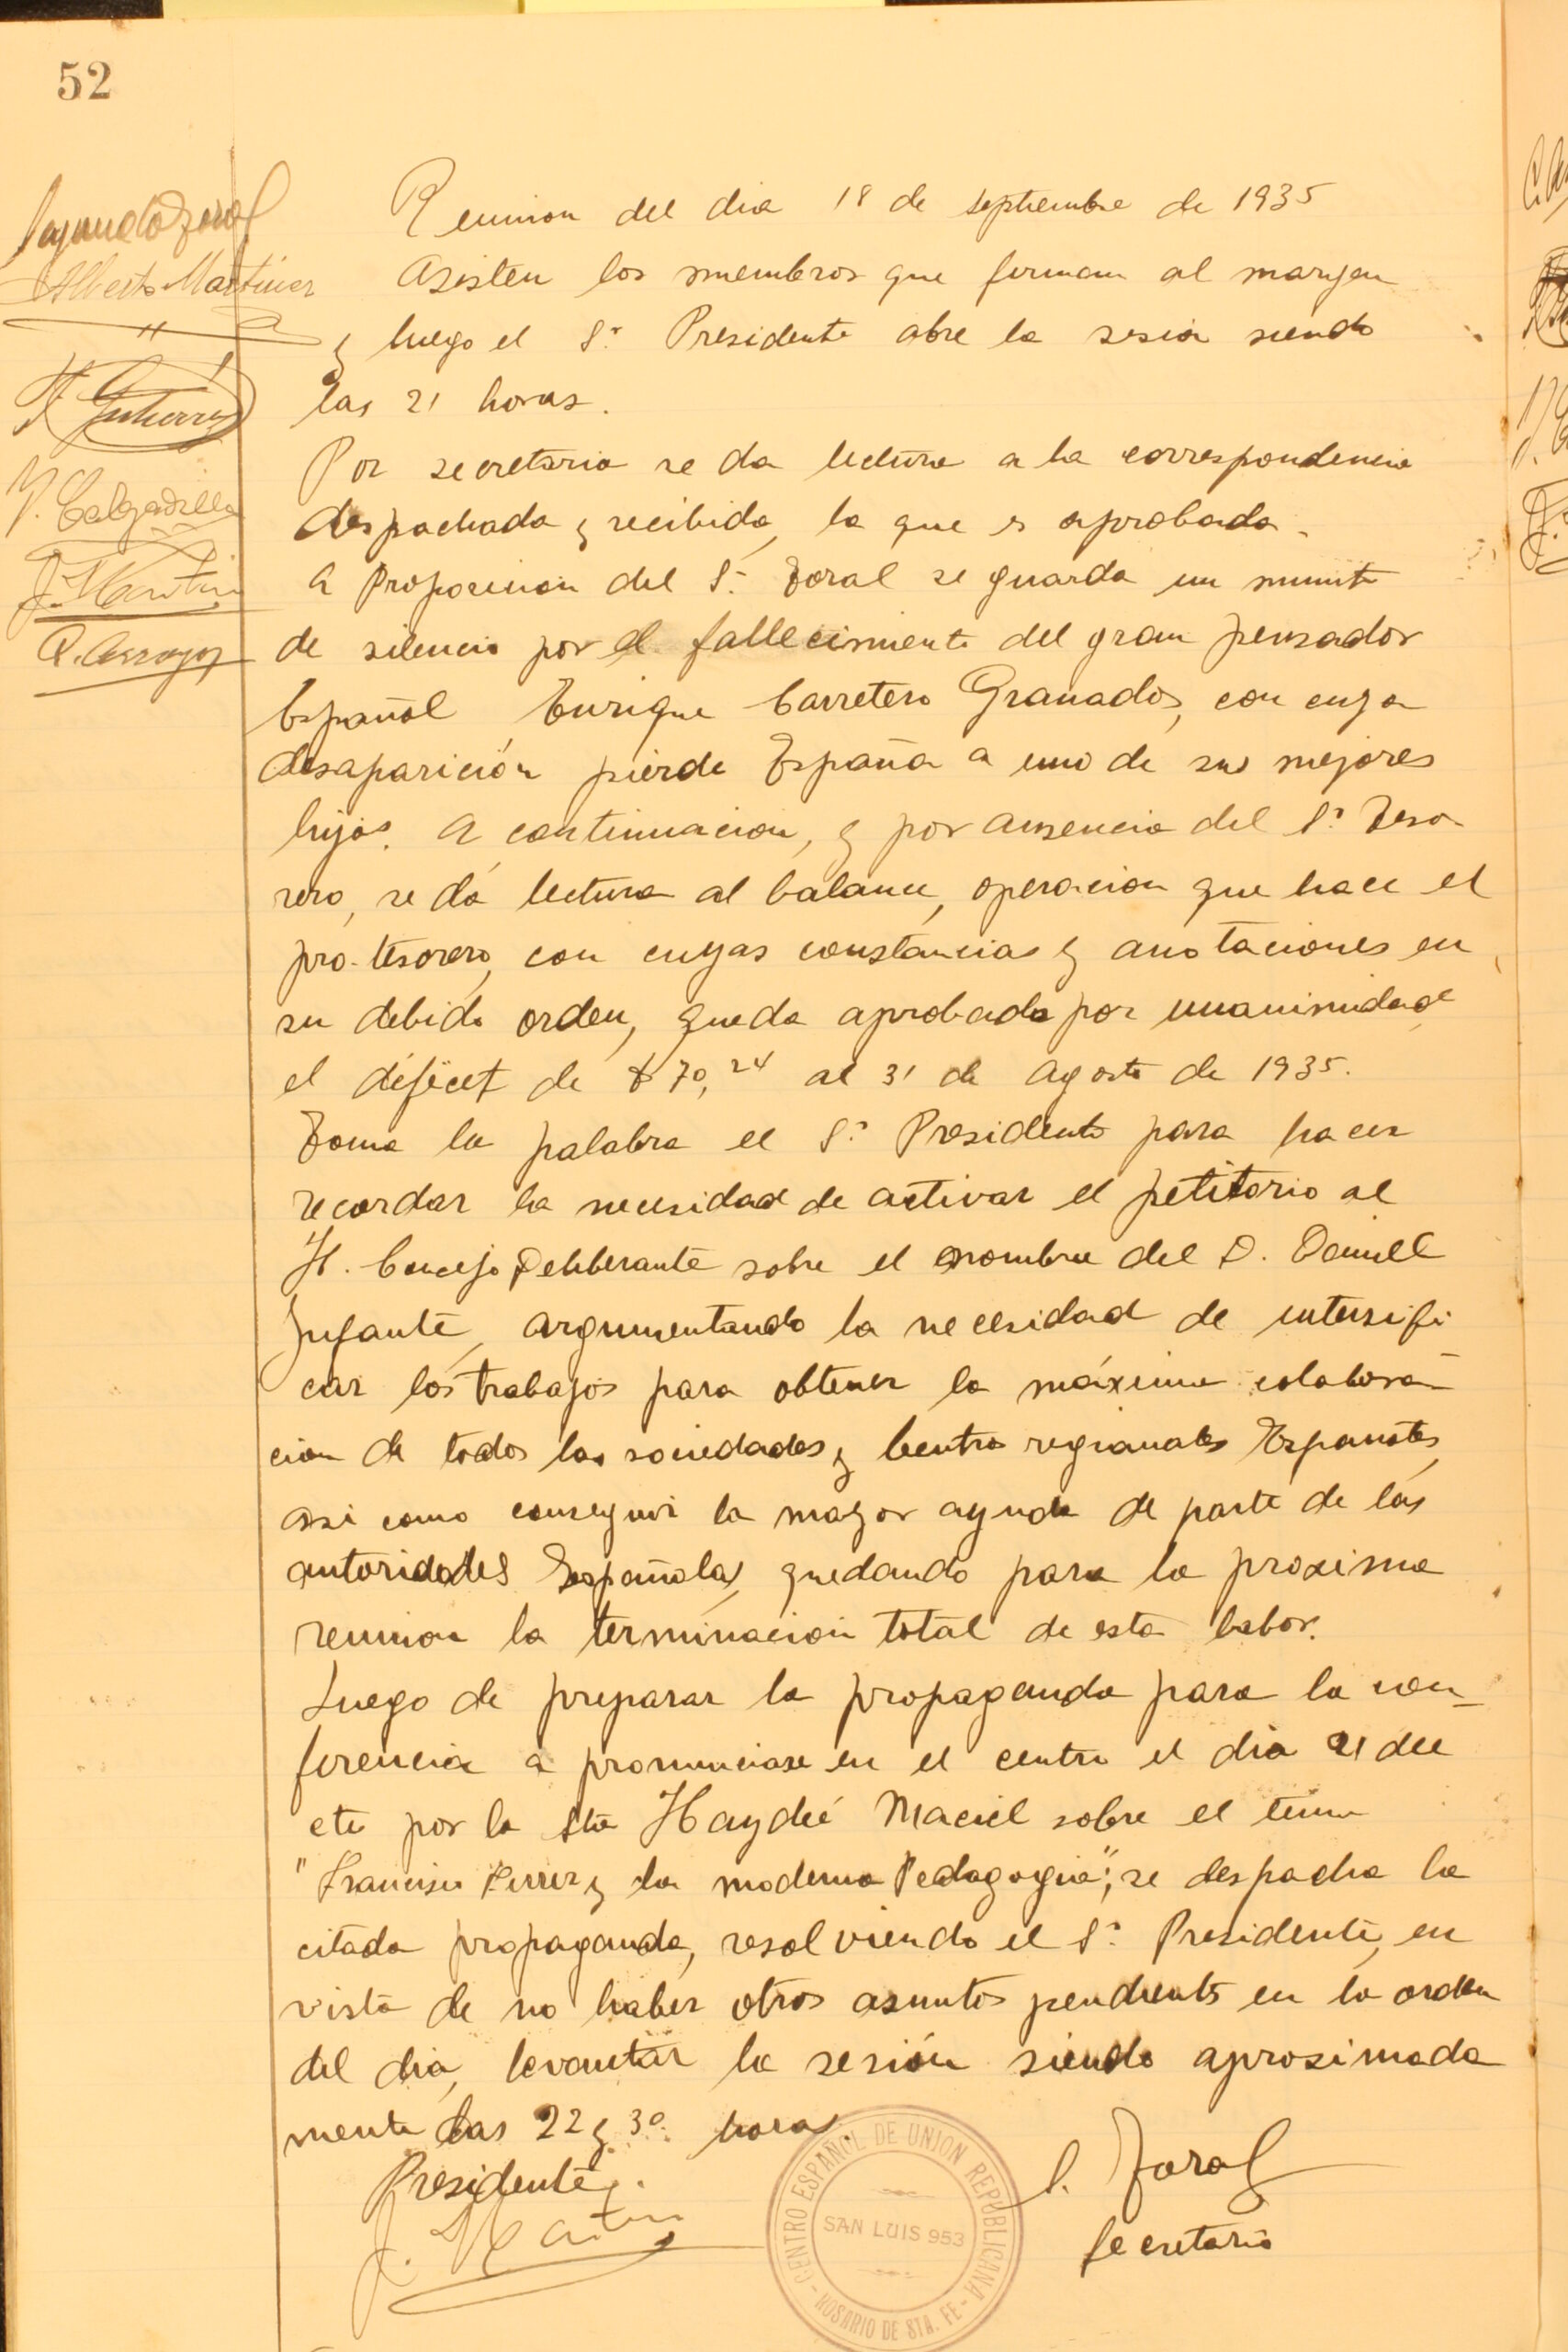 52
Segundo Toral
Alberto Martinez
Gutierrez
J. Martin
R. Arroyos
Reunion del dia 18 de septiembre de 1935
Asisten los miembros que firman al margen
y luego el Sr. Presidente abre la sesion siendo
las 21 horas.
Por secretaria se da lectura a la correspondencia
despachada y recibida, la que es aprobada.
A proposicion del Sr. Toral se guarda un minuto
de silencio por el fallecimiento del gran pensador
Español Enrique Carretero Granados, con cuya
desaparición pierde España a uno de sus mejores
hijos. A continuacion, y por ausencia del Sr. Teso-
rero, se dá lectura al balance, operacion que hace el
pro-tesorero, con cuyas constancias y anotaciones en
su debido orden, queda aprobada por unanimidad
el déficet de $ 70,24 al 31 de Agosto de 1935.
Toma la palabra el Sr. Presidente para hacer
recordar la necesidad de activar el petitorio al
H. Concejo Deliberante sobre el nombre del D. Daniel
Infante, argumentando la necesidad de intensifi
car los trabajos para obtener la máxima colabora-
cion de todas las sociedades y Centros regionales Españoles,
asi como conseguir la mayor ayuda de parte de las
autoridades Españolas, quedando para la proxima
reunion la terminacion total de esta labor.
Luego de preparar la propaganda para la con-
ferencia a pronunciase en el centro el dia 21 del
ete por la Sta Haydeé Maciel sobre el tema
"Francisco Ferrer y la moderna Pedagogia"; se despacha la
citada propaganda, resolviendo el Sr. Presidente, en
vista de no haber otros asuntos pendientes en la orden
del dia, levantar la sesión siendo aproximada
mente las 22 y 30. horas.
Presidente.
J. Martin
S. Toral
Secretario
CENTRO ESPAÑOL DE UNION REPUBLICANA
SAN LUIS 953
- ROSARIO DE STA. FE -